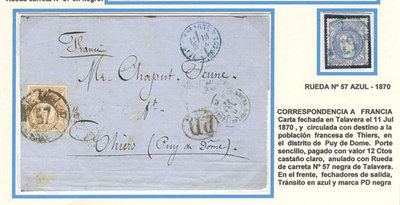 (France)
Mr. Chaput Jeune
Thiers (Puy de Dome)
57
PD
RUEDA Nº 57 AZUL - 1870
CORRESPONDENCIA A FRANCIA
Carta fechada en Talavera el 11 Jul
1870 , y circulada con destino a la
población francesa de Thiers, en
el distrito de Puy de Dome. Porte
sencillo, pagado con valor 12 Ctos
castaño claro, anulado con Rueda
de carreta Nº 57 negra de Talavera.
En el frente, fechadores de salida,
Tránsito en azul y marca PD negra